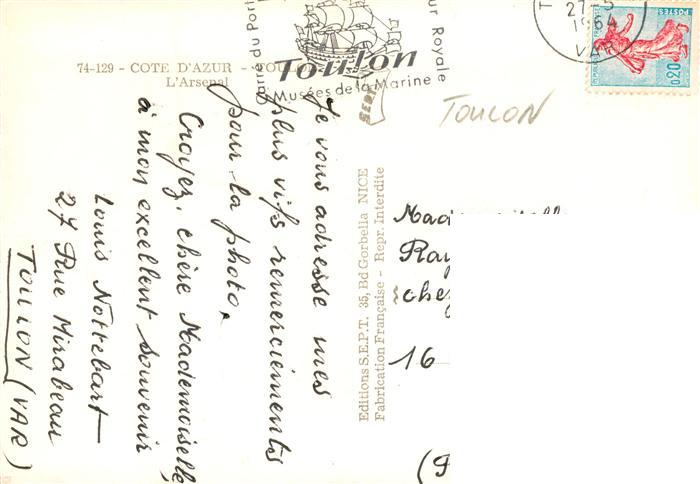 74-129 - COTE D'AZUR - TOULON
L'Arsenal
Toulon
Musées de la Marine
Royale
27-5
1964
VAR
POSTES
0,20
TOULON
Je vous adresse mes
plus vifs remerciements
pour la photo.
Croyez, chère Mademoiselle
à mon excellent souvenir
Louis Nottebart
27 Rue Mirabeau
TOULON (VAR)
Editions S.E.P.T. 35, Bd Gorbella NICE
Fabrication Française - Repr. Interdite
Ray
chez
16